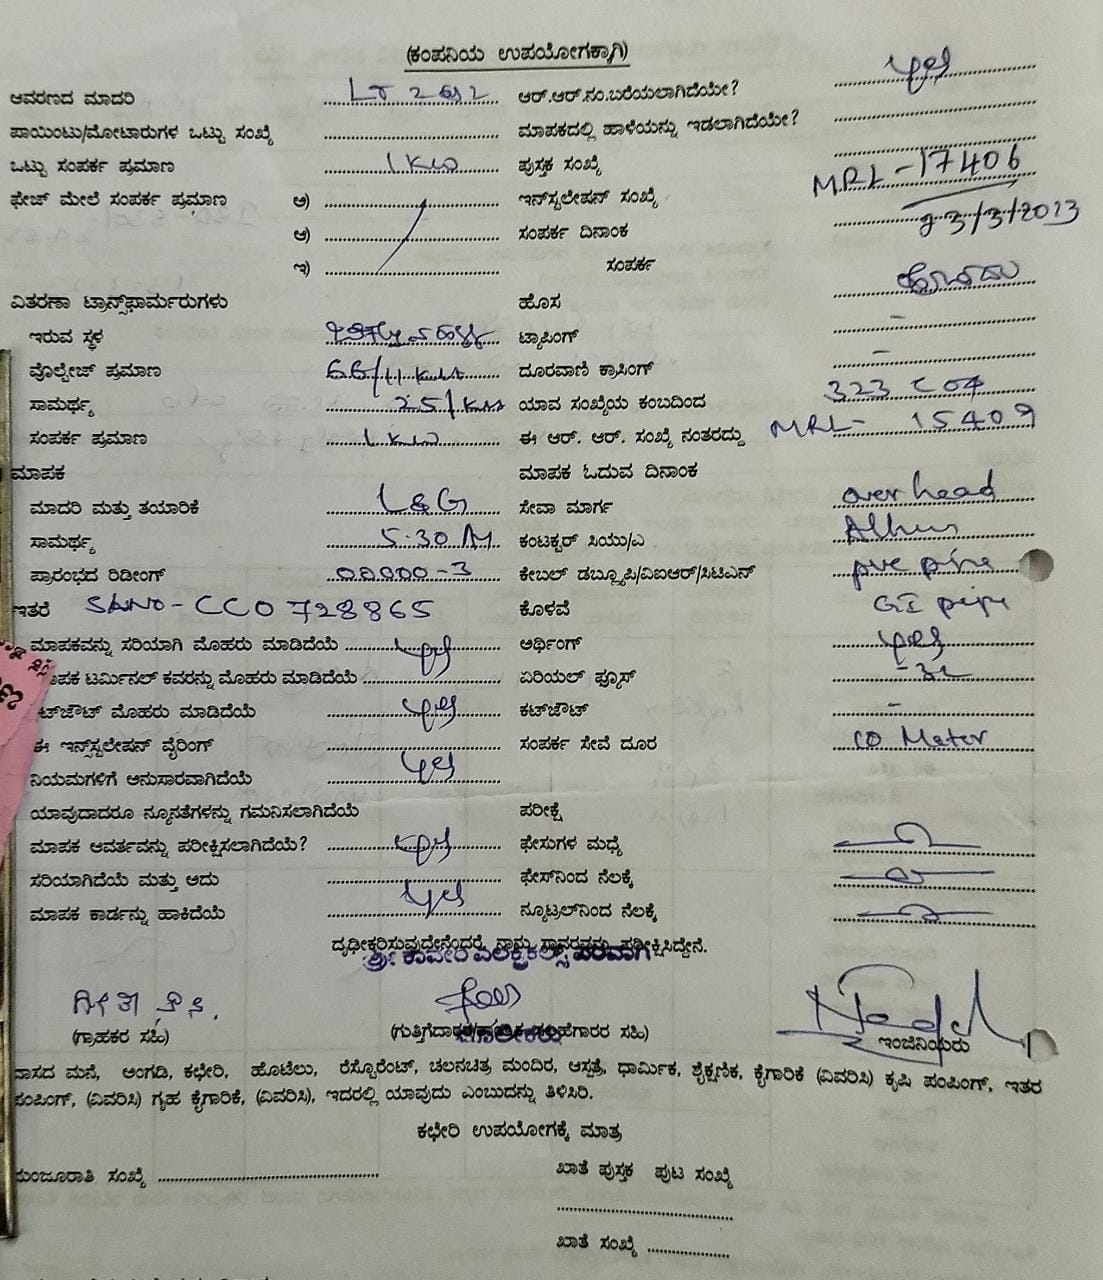 (ಕಂಪನಿಯ ಉಪಯೋಗಕ್ಕಾಗಿ)
ಆವರಣದ ಮಾದರಿ LT 2 ಆರ್.ಆರ್.ನಂ.ಬರೆಯಲಾಗಿದೆಯೇ?
ಪಾಯಿಂಟು/ಮೋಟಾರುಗಳ ಒಟ್ಟು ಸಂಖ್ಯೆ ಮಾಪಕದಲ್ಲಿ ಹಾಳೆಯನ್ನು ಇಡಲಾಗಿದೆಯೇ?
ಒಟ್ಟು ಸಂಪರ್ಕ ಪ್ರಮಾಣ 1 KW ಪುಸ್ತಕ ಸಂಖ್ಯೆ
ಫೇಜ್ ಮೇಲೆ ಸಂಪರ್ಕ ಪ್ರಮಾಣ ಅ) ಇನ್‌ಸ್ಟಲೇಷನ್ ಸಂಖ್ಯೆ MRL-17406
ಆ) ಸಂಪರ್ಕ ದಿನಾಂಕ 23/3/2013
ಇ) ಸಂಪರ್ಕ
ವಿತರಣಾ ಟ್ರಾನ್ಸ್‌ಫಾರ್ಮರುಗಳು ಹೊಸ
ಇರುವ ಸ್ಥಳ ಟ್ಯಾಪಿಂಗ್ -
ವೊಲ್ಟೇಜ್ ಪ್ರಮಾಣ 66/11 ದೂರವಾಣಿ ಕ್ರಾಸಿಂಗ್ -
ಸಾಮರ್ಥ್ಯ 25 ಯಾವ ಸಂಖ್ಯೆಯ ಕಂಬದಿಂದ 323
ಸಂಪರ್ಕ ಪ್ರಮಾಣ 1 KW ಈ ಆರ್. ಆರ್. ಸಂಖ್ಯೆ ನಂತರದ್ದು MRL- 15409
ಮಾಪಕ ಮಾಪಕ ಓದುವ ದಿನಾಂಕ
ಮಾದರಿ ಮತ್ತು ತಯಾರಿಕೆ L&G ಸೇವಾ ಮಾರ್ಗ over head
ಸಾಮರ್ಥ್ಯ 5-30 A ಕಂಟಕ್ಟರ್ ಸಿಯು/ಎ
ಪ್ರಾರಂಭದ ರಿಡೀಂಗ್ 00000-3 ಕೇಬಲ್ ಡಬ್ಲ್ಯೂಪಿ/ವಿಐಆರ್/ಸಿಟಿಎನ್
ಇತರೆ SLNO-CCO728865 ಕೊಳವೆ GI pipe
ಮಾಪಕವನ್ನು ಸರಿಯಾಗಿ ಮೊಹರು ಮಾಡಿದೆಯೆ yes ಅರ್ಥಿಂಗ್ yes
ಮಾಪಕ ಟರ್ಮಿನಲ್ ಕವರನ್ನು ಮೊಹರು ಮಾಡಿದೆಯೆ ಏರಿಯಲ್ ಫ್ಯೂಸ್
ಕಟ್‌ಜೌಟ್ ಮೊಹರು ಮಾಡಿದೆಯೆ yes ಕಟ್‌ಜೌಟ್ -
ಈ ಇನ್‌ಸ್ಟಲೇಷನ್ ವೈರಿಂಗ್ ಸಂಪರ್ಕ ಸೇವೆ ದೂರ 10 Meter
ನಿಯಮಗಳಿಗೆ ಅನುಸಾರವಾಗಿದೆಯೆ yes
ಯಾವುದಾದರೂ ನ್ಯೂನತೆಗಳನ್ನು ಗಮನಿಸಲಾಗಿದೆಯೆ ಪರೀಕ್ಷೆ
ಮಾಪಕ ಆವರ್ತವನ್ನು ಪರೀಕ್ಷಿಸಲಾಗಿದೆಯೆ? yes ಫೇಸುಗಳ ಮಧ್ಯೆ
ಸರಿಯಾಗಿದೆಯೆ ಮತ್ತು ಅದು ಫೇಸ್‌ನಿಂದ ನೆಲಕ್ಕೆ
ಮಾಪಕ ಕಾರ್ಡನ್ನು ಹಾಕಿದೆಯೆ yes ನ್ಯೂಟ್ರಲ್‌ನಿಂದ ನೆಲಕ್ಕೆ
ದೃಢೀಕರಿಸುವುದೇನೆಂದರೆ, ನಾನು ಪರೀಕ್ಷಿಸಿದ್ದೇನೆ.
ಶ್ರೀ ಕಾವೇರಿ ಎಲೆಕ್ಟ್ರಿಕಲ್ಸ್ ಪರವಾಗಿ
(ಗ್ರಾಹಕರ ಸಹಿ) ಸಹಿ) ಇಂಜಿನಿಯರು
ಮಾಲೀಕರು
ವಾಸದ ಮನೆ, ಅಂಗಡಿ, ಕಛೇರಿ, ಹೊಟೆಲು, ರೆಸ್ಟೋರೆಂಟ್, ಚಲನಚಿತ್ರ ಮಂದಿರ, ಆಸ್ಪತ್ರೆ, ಧಾರ್ಮಿಕ, ಶೈಕ್ಷಣಿಕ, ಕೈಗಾರಿಕೆ (ವಿವರಿಸಿ) ಕೃಷಿ ಪಂಪಿಂಗ್, ಇತರ
ಪಂಪಿಂಗ್, (ವಿವರಿಸಿ) ಗೃಹ ಕೈಗಾರಿಕೆ, (ವಿವರಿಸಿ), ಇದರಲ್ಲಿ ಯಾವುದು ಎಂಬುದನ್ನು ತಿಳಿಸಿರಿ.
ಕಛೇರಿ ಉಪಯೋಗಕ್ಕೆ ಮಾತ್ರ
ಮಂಜೂರಾತಿ ಸಂಖ್ಯೆ ಖಾತೆ ಪುಸ್ತಕ ಪುಟ ಸಂಖ್ಯೆ
ಖಾತೆ ಸಂಖ್ಯೆ